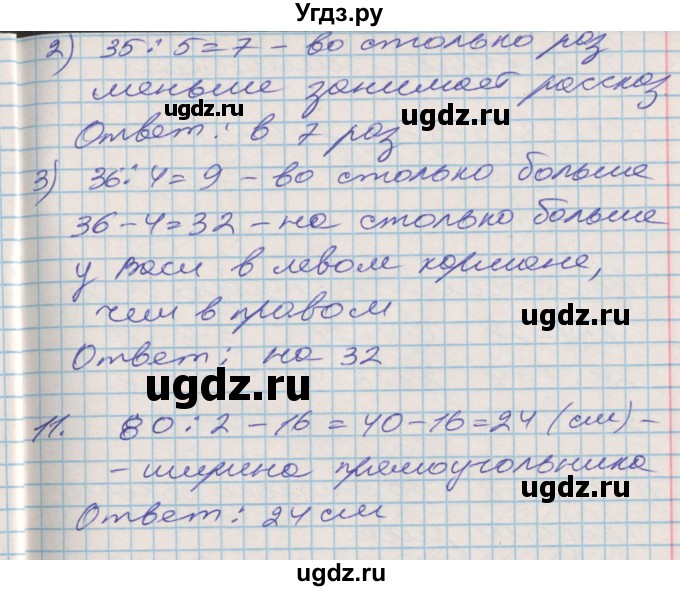 Угдз.ру
2) 35 : 5 = 7 – во столько раз
меньше занимает рассказ
ugdz.ru ugdz.ru
Ответ: в 7 раз
3) 36 : 4 = 9 – во столько больше
36 – 4 = 32 – на столько больше
у Васи в левом кармане,
чем в правом
ugdz.ru
Ответ: на 32
ugdz.ru
11. 80 : 2 – 16 = 40 – 16 = 24 (см) –
– ширина прямоугольника
ugdz.ru
Ответ: 24 см
ugdz.ru